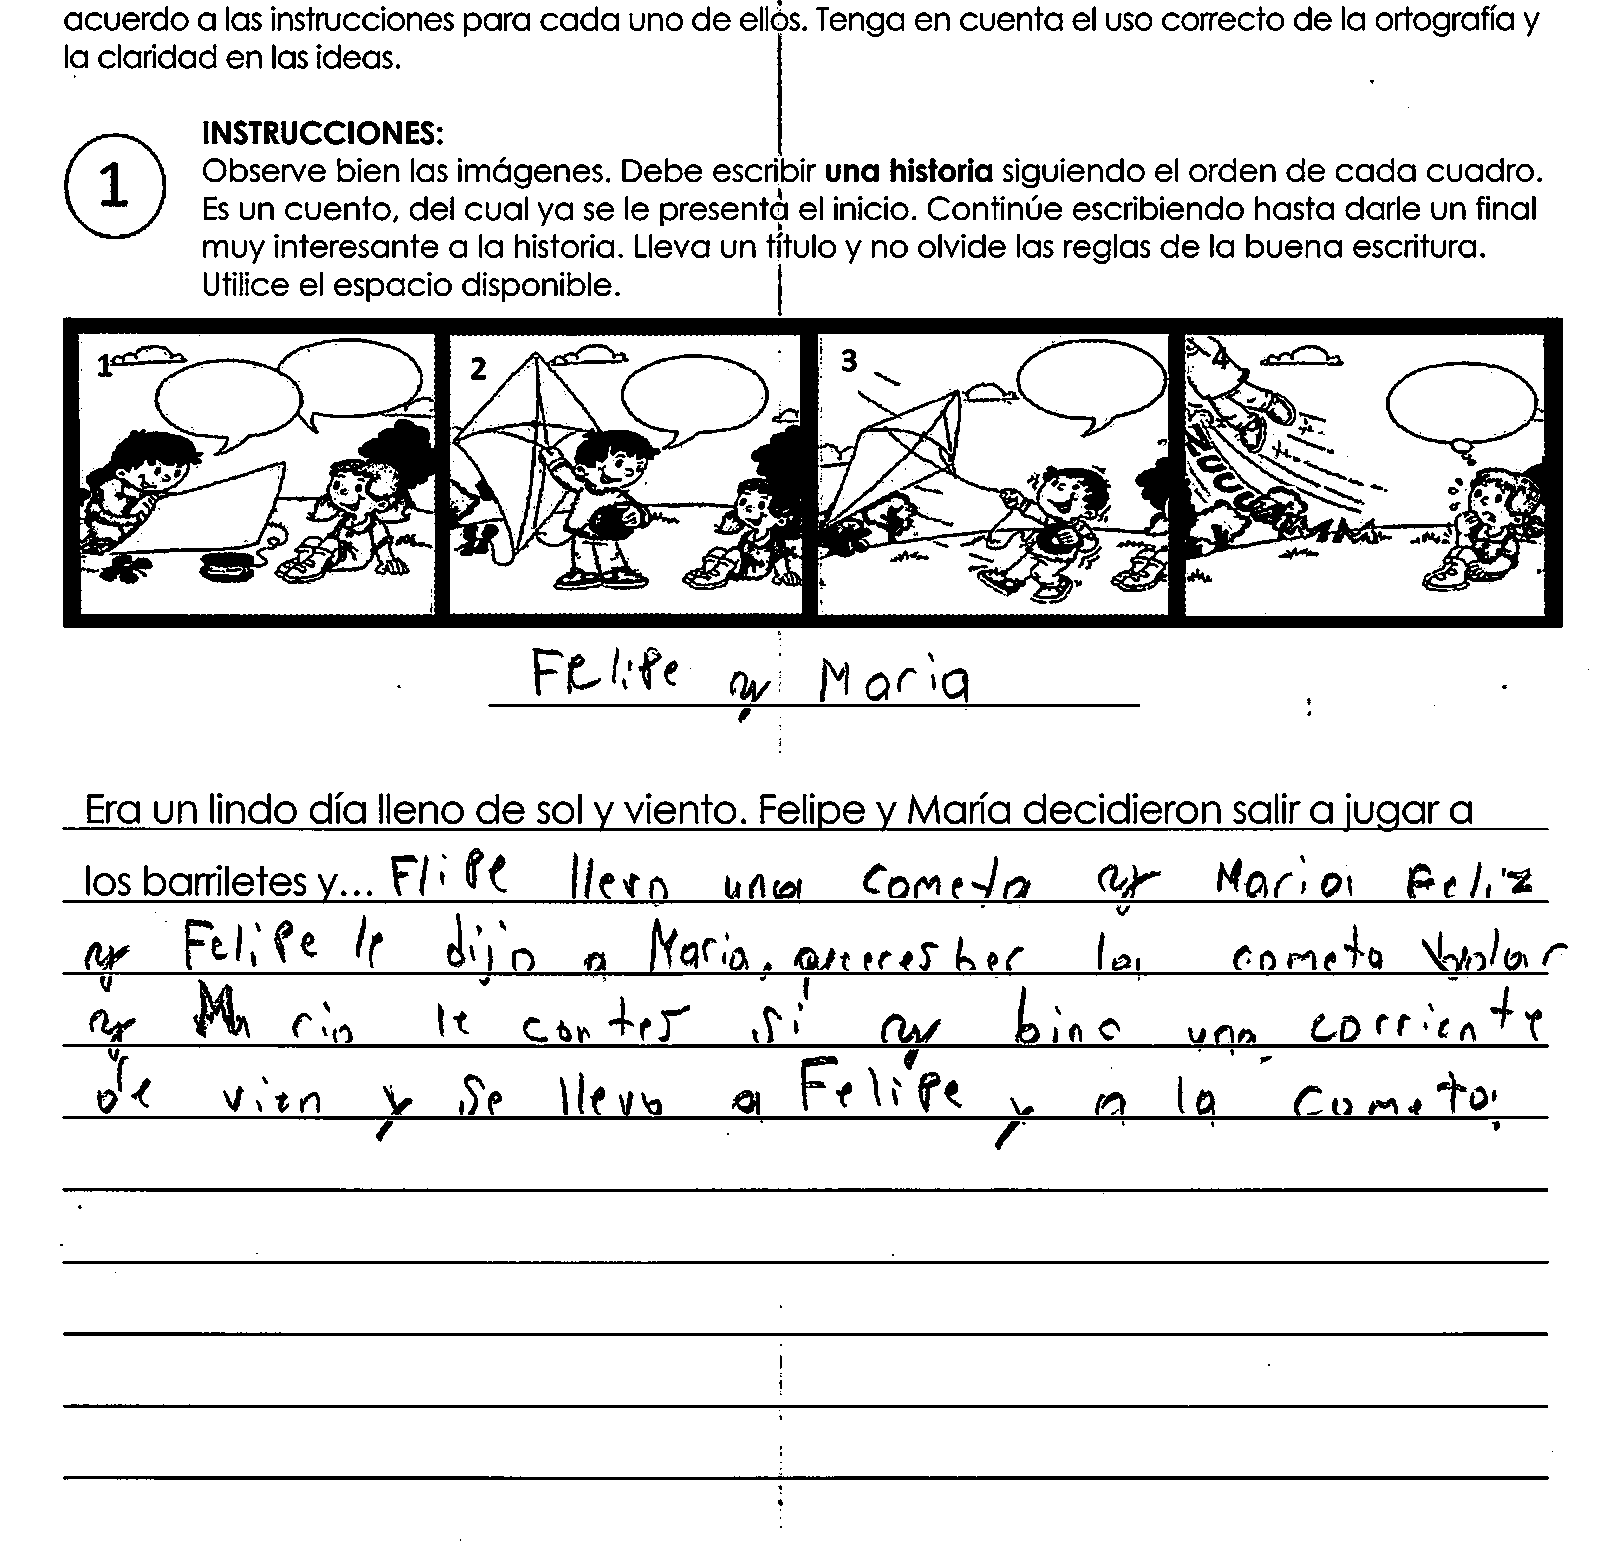 acuerdo a las instrucciones para cada uno de ellos. Tenga en cuenta el uso correcto de la ortografía y
la claridad en las ideas.
1
INSTRUCCIONES:
Observe bien las imágenes. Debe escribir una historia siguiendo el orden de cada cuadro.
Es un cuento, del cual ya se le presenta el inicio. Continúe escribiendo hasta darle un final
muy interesante a la historia. Lleva un título y no olvide las reglas de la buena escritura.
Utilice el espacio disponible.
1 2 3 4
ZUUUUU
Felipe y Maria
Era un lindo día lleno de sol y viento. Felipe y María decidieron salir a jugar a
los barriletes y... Flipe llevo una cometa y Maria Feliz
y Felipe le dijo a Maria, queres ber la cometa bolar
y Maria le contes si y bino una corriente
de vien y se llevo a Felipe y a la cometa.